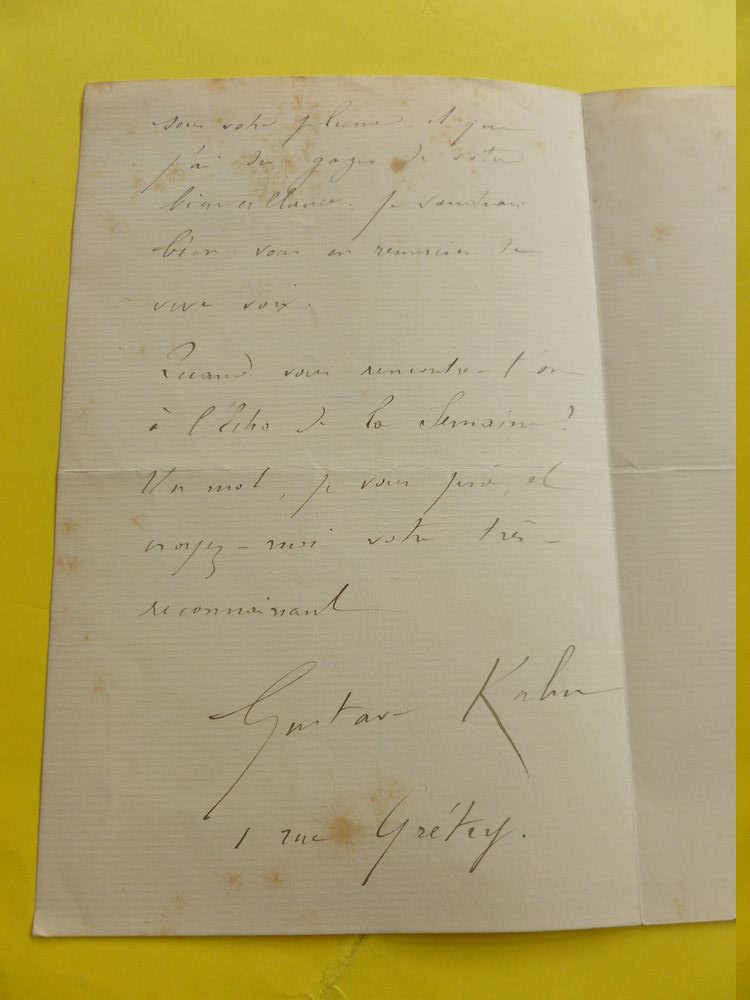 sous votre plume et que
j'ai du gages de votre
bienveillance. Je voudrais
bien vous en remercier de
vive voix.
Quand vous rencontre-t'on
à l'Écho de la Semaine?
Un mot, je vous prie, et
croyez-moi votre très-
reconnaissant
Gustave Kahn
1 rue Grétry.